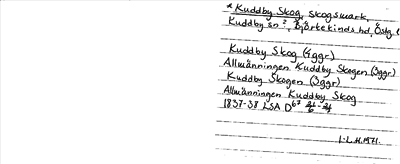 * Kuddby Skog, skogsmark,
Kuddby sn?, Björkekinds hd, Östg.l
Kuddby Skog (4ggr)
Allmänningen Kuddby Skogen (3ggr)
Kuddby Skogen (3ggr)
Allmänningen Kuddby Skog
1837-38 LSA D